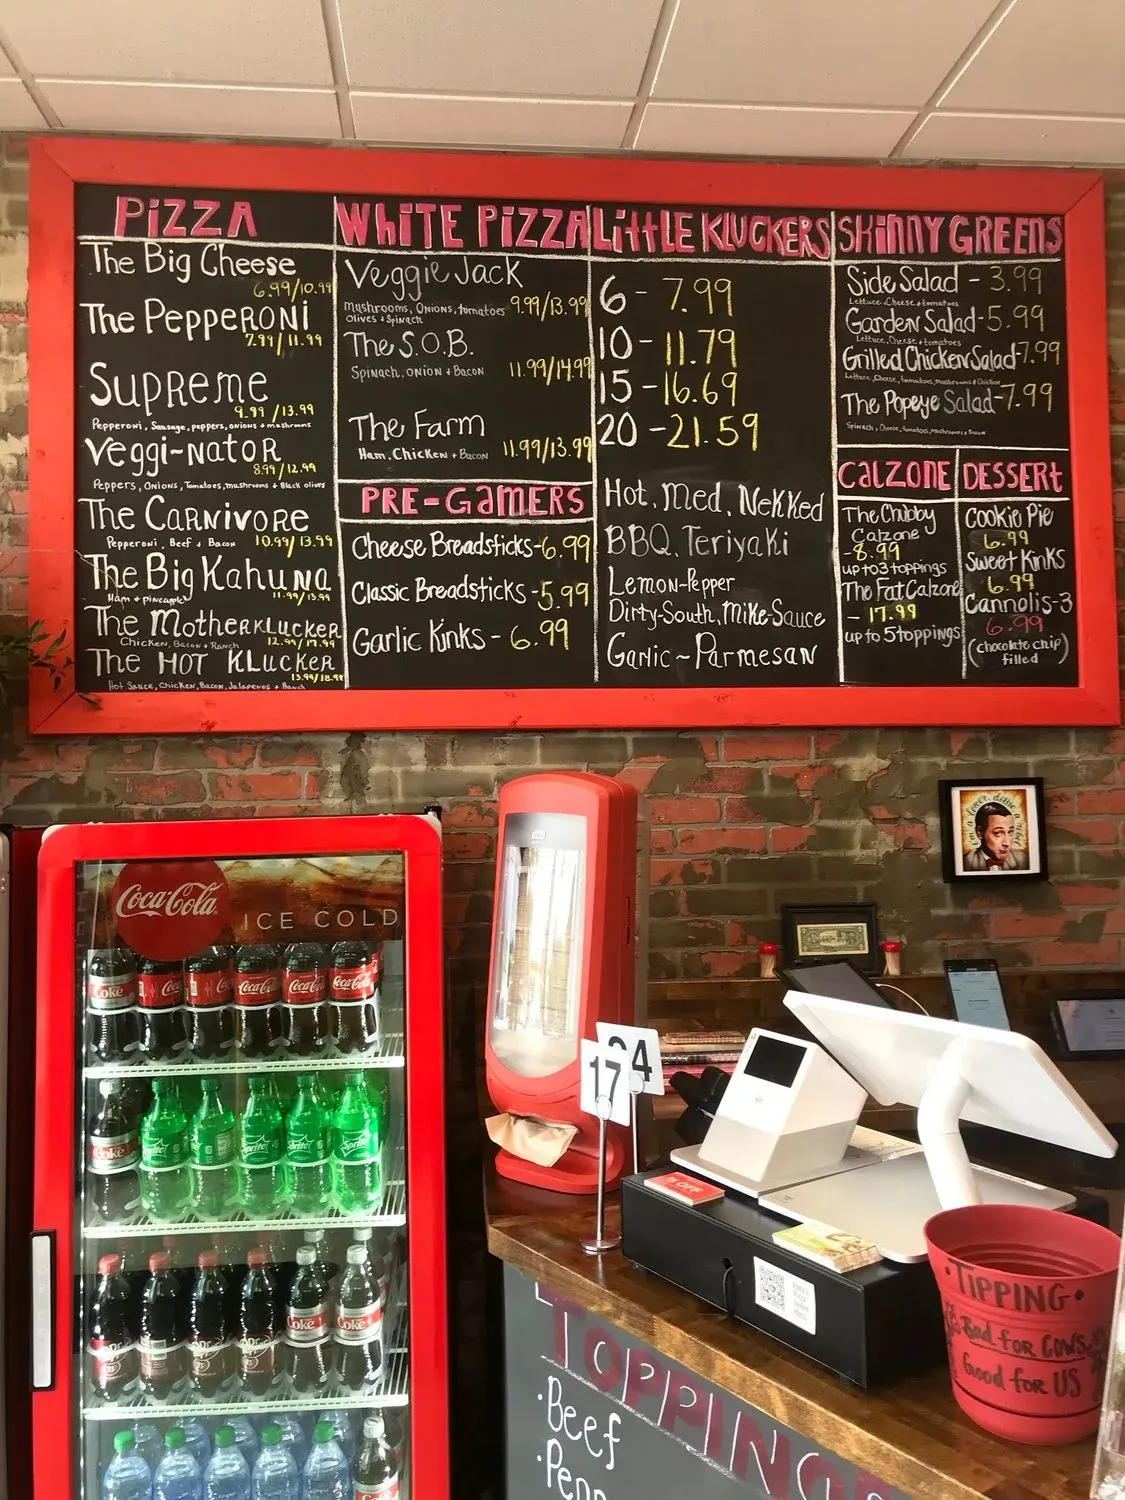 PIZZA
The Big Cheese
6.99/10.99
The Pepperoni
7.99/11.99
Supreme
9.99/13.99
Pepperoni, Sausage, peppers, onions + mushrooms
Veggi-nator
8.99/12.99
Peppers, Onions, Tomatoes, mushrooms + Black olives
The Carnivore
Pepperoni, Beef + Bacon 10.99/13.99
The Big Kahuna
Ham + pineapple 11.99/13.99
The Motherklucker
Chicken, Bacon + Ranch 12.99/17.99
The Hot Klucker
13.99/18.99
Hot Sauce, Chicken, Bacon, Jalapenos + Ranch
WHITE PIZZA
Veggie Jack
mushrooms, Onions, tomatoes 9.99/13.99
olives + Spinach
The S.O.B.
Spinach, onion + Bacon 11.99/14.99
The Farm
Ham, Chicken + Bacon 11.99/13.99
PRE-GAMERS
Cheese Breadsticks-6.99
Classic Breadsticks-5.99
Garlic Kinks-6.99
LITTLE KLUCKERS
6 - 7.99
10 - 11.79
15 - 16.69
20 - 21.59
Hot, Med, Nekked
BBQ, Teriyaki
Lemon-Pepper
Dirty-South, Mike-Sauce
Garlic-Parmesan
SKINNY GREENS
Side Salad - 3.99
Lettuce, Cheese + tomatoes
Garden Salad-5.99
Lettuce, Cheese + tomatoes
Grilled Chicken Salad-7.99
Lettuce, Cheese, tomatoes, mushrooms + Chicken
The Popeye Salad-7.99
Spinach, Cheese, tomatoes, mushrooms + Bacon
CALZONE
The Chubby
Calzone
-8.99
up to 3 toppings
The Fat Calzone
-17.99
up to 5 toppings
DESSERT
Cookie Pie
6.99
Sweet Kinks
6.99
Cannolis-3
6.99
(chocolate chip)
filled
Coca-Cola
ICE COLD
Coke
Coca-Cola
Coca-Cola
Coca-Cola
Coke
Sprite
Sprite
Sprite
Coke
Coke
Coke
17
24
OFF
TOPPINGS
·Beef
·Pepp
·TIPPING·
Bad for COWS
Good for US